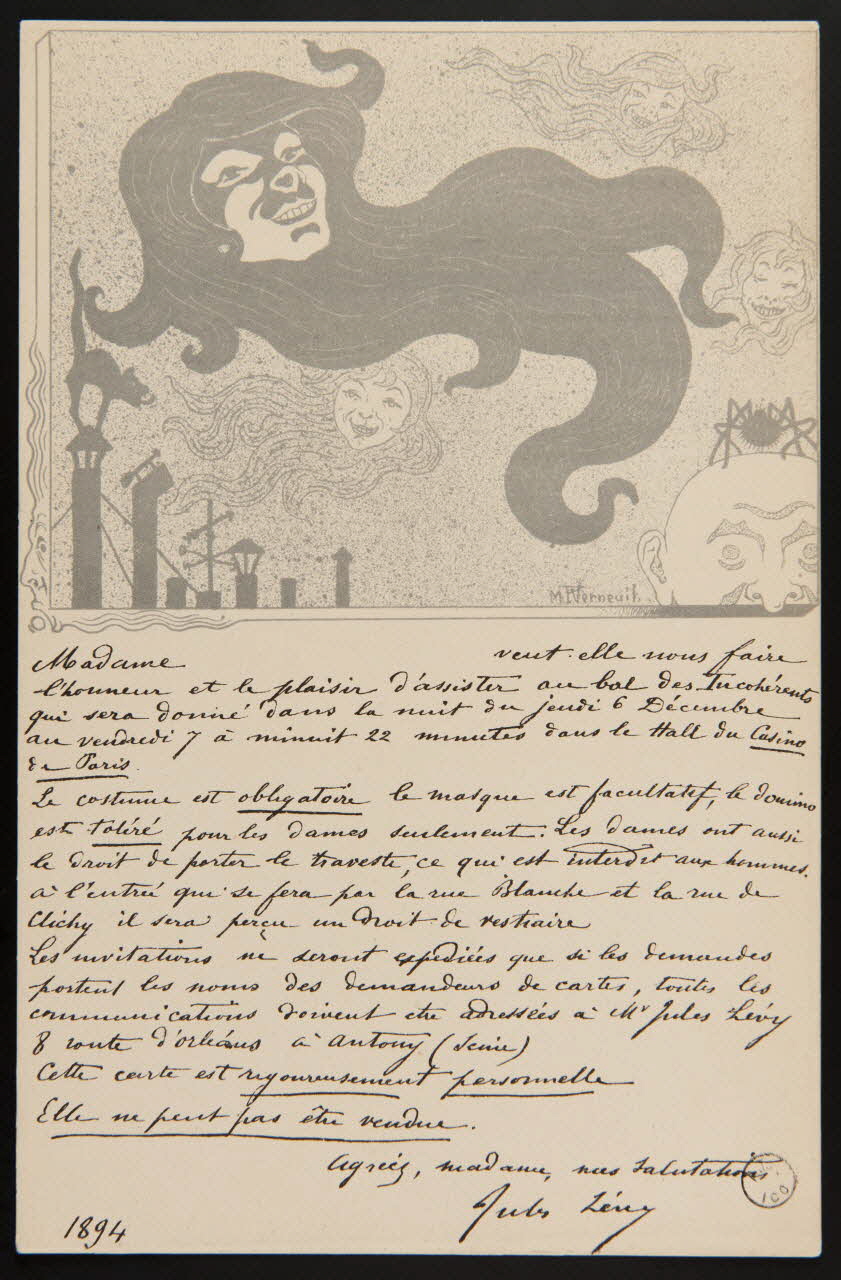 M.P.Verneuil.
Madame veut-elle nous faire
l'honneur et le plaisir d'assister au bal des Incohérents
qui sera donné dans la nuit du jeudi 6 Décembre
au vendredi 7 à minuit 22 minutes dans le Hall du Casino
de Paris.
Le costume est obligatoire le masque est facultatif, le domino
est toléré pour les dames seulement. Les dames ont aussi
le droit de porter le travesti, ce qui est interdit aux hommes.
à l'entrée qui se fera par la rue Blanche et la rue de
Clichy il sera perçu un droit de vestiaire
Les invitations ne seront expédiées que si les demandes
portent les noms des demandeurs de cartes, toutes les
communications doivent être adressées à Mr Jules Lévy
8 route d'orléans à antony (Seine)
Cette carte est rigoureusement personnelle
Elle ne peut pas être vendue.
Agréez, madame, nos salutations
Jules Lévy
1894